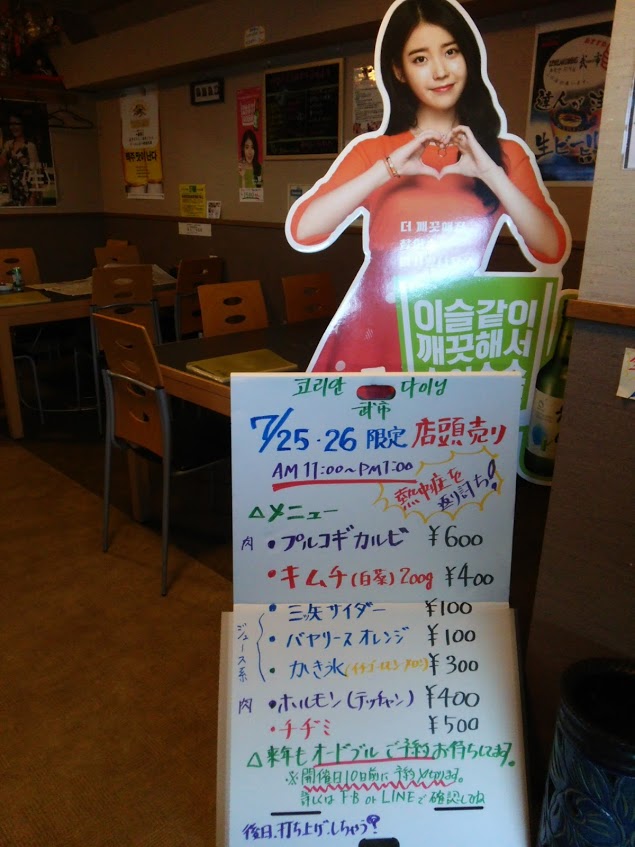 더 깨끗해져
이슬같이
깨끗해서
코리안 다이닝
7/25・26 限定 店頭売り
AM 11:00~PM1:00
熱中症を
返り討ち!
△メニュー
肉 •プルコギカルビ ¥600
•キムチ(白菜)200g ¥400
ジュース系
•三ツ矢サイダー ¥100
•バヤリース オレンジ ¥100
•かき氷(イチゴ・レモン・メロン) ¥300
肉 •ホルモン(テッチャン) ¥400
•チヂミ ¥500
△来年もオードブルご予約お待ちしてます。
※開催日10日前に予約〆切ります。
詳しくは F・B or LINEで確認してね
後日、打ち上げ、しちゃう?